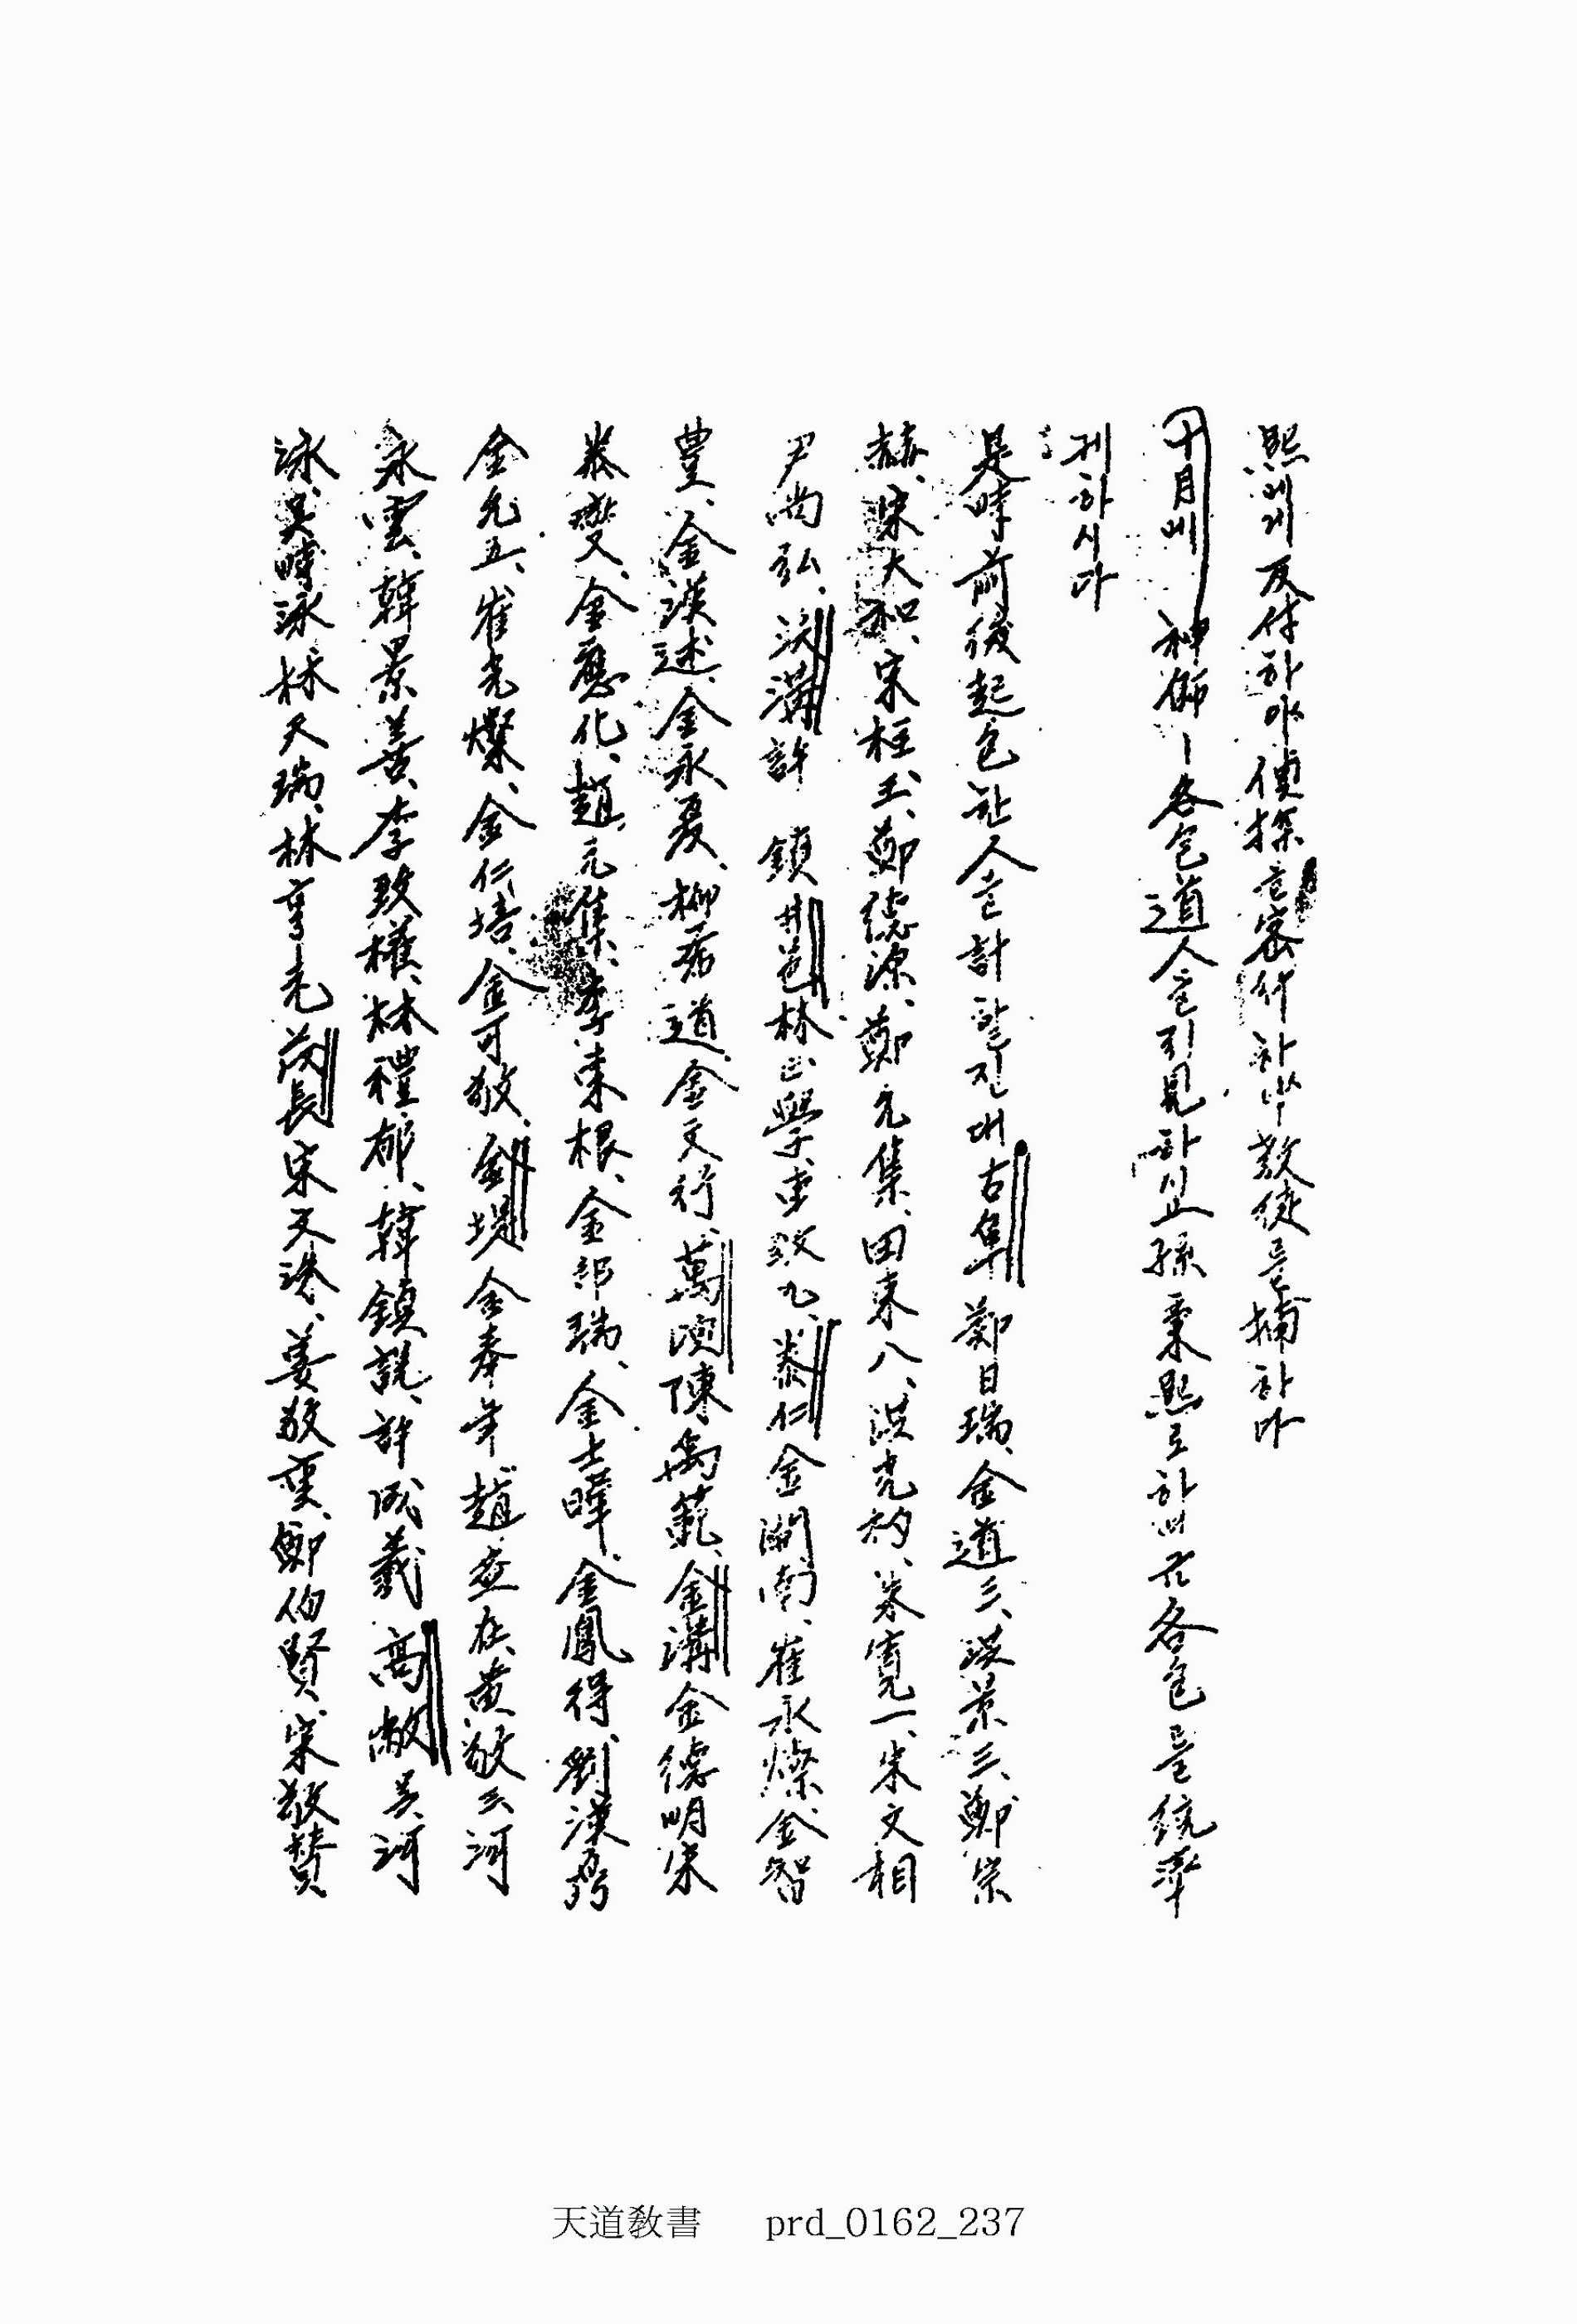 熙에게反付하야偵探을密行하야敎徒를捕하다
十月에 神師ㅣ各包道人을引見하시고孫秉熙로하여금各包를統率
케하시다
是時前後起包한人을計할진대古阜鄭日瑞、金道三、洪景三、鄭宗
赫、宋大和、宋柱玉、鄭德源、鄭允集、田東八、洪光杓、朱寬一、朱文相
尹尚弘、淡溝許 鎮井邑林正學、車致九、泰仁金開南、崔永燦、金智
豊、金漢述、金永夏、柳希道、金文行、萬頃陳禹範、金溝金德明宋
泰燮、金應化、趙元集、李東根、金邦瑞、金士曄、金鳳得、劉漢弼
金允五、崔光燦、金仁培、金可敬、金堤金奉年、趙益在、黃敬三、河
永雲、韓景善、李致權、林禮郁、韓鎮說、許成羲高敞吳河
泳、吳時泳、林天瑞、林亨老茂長宋文洙、姜敬重、鄭伯賢、宋敬贊
天道敎書 prd_0162_237